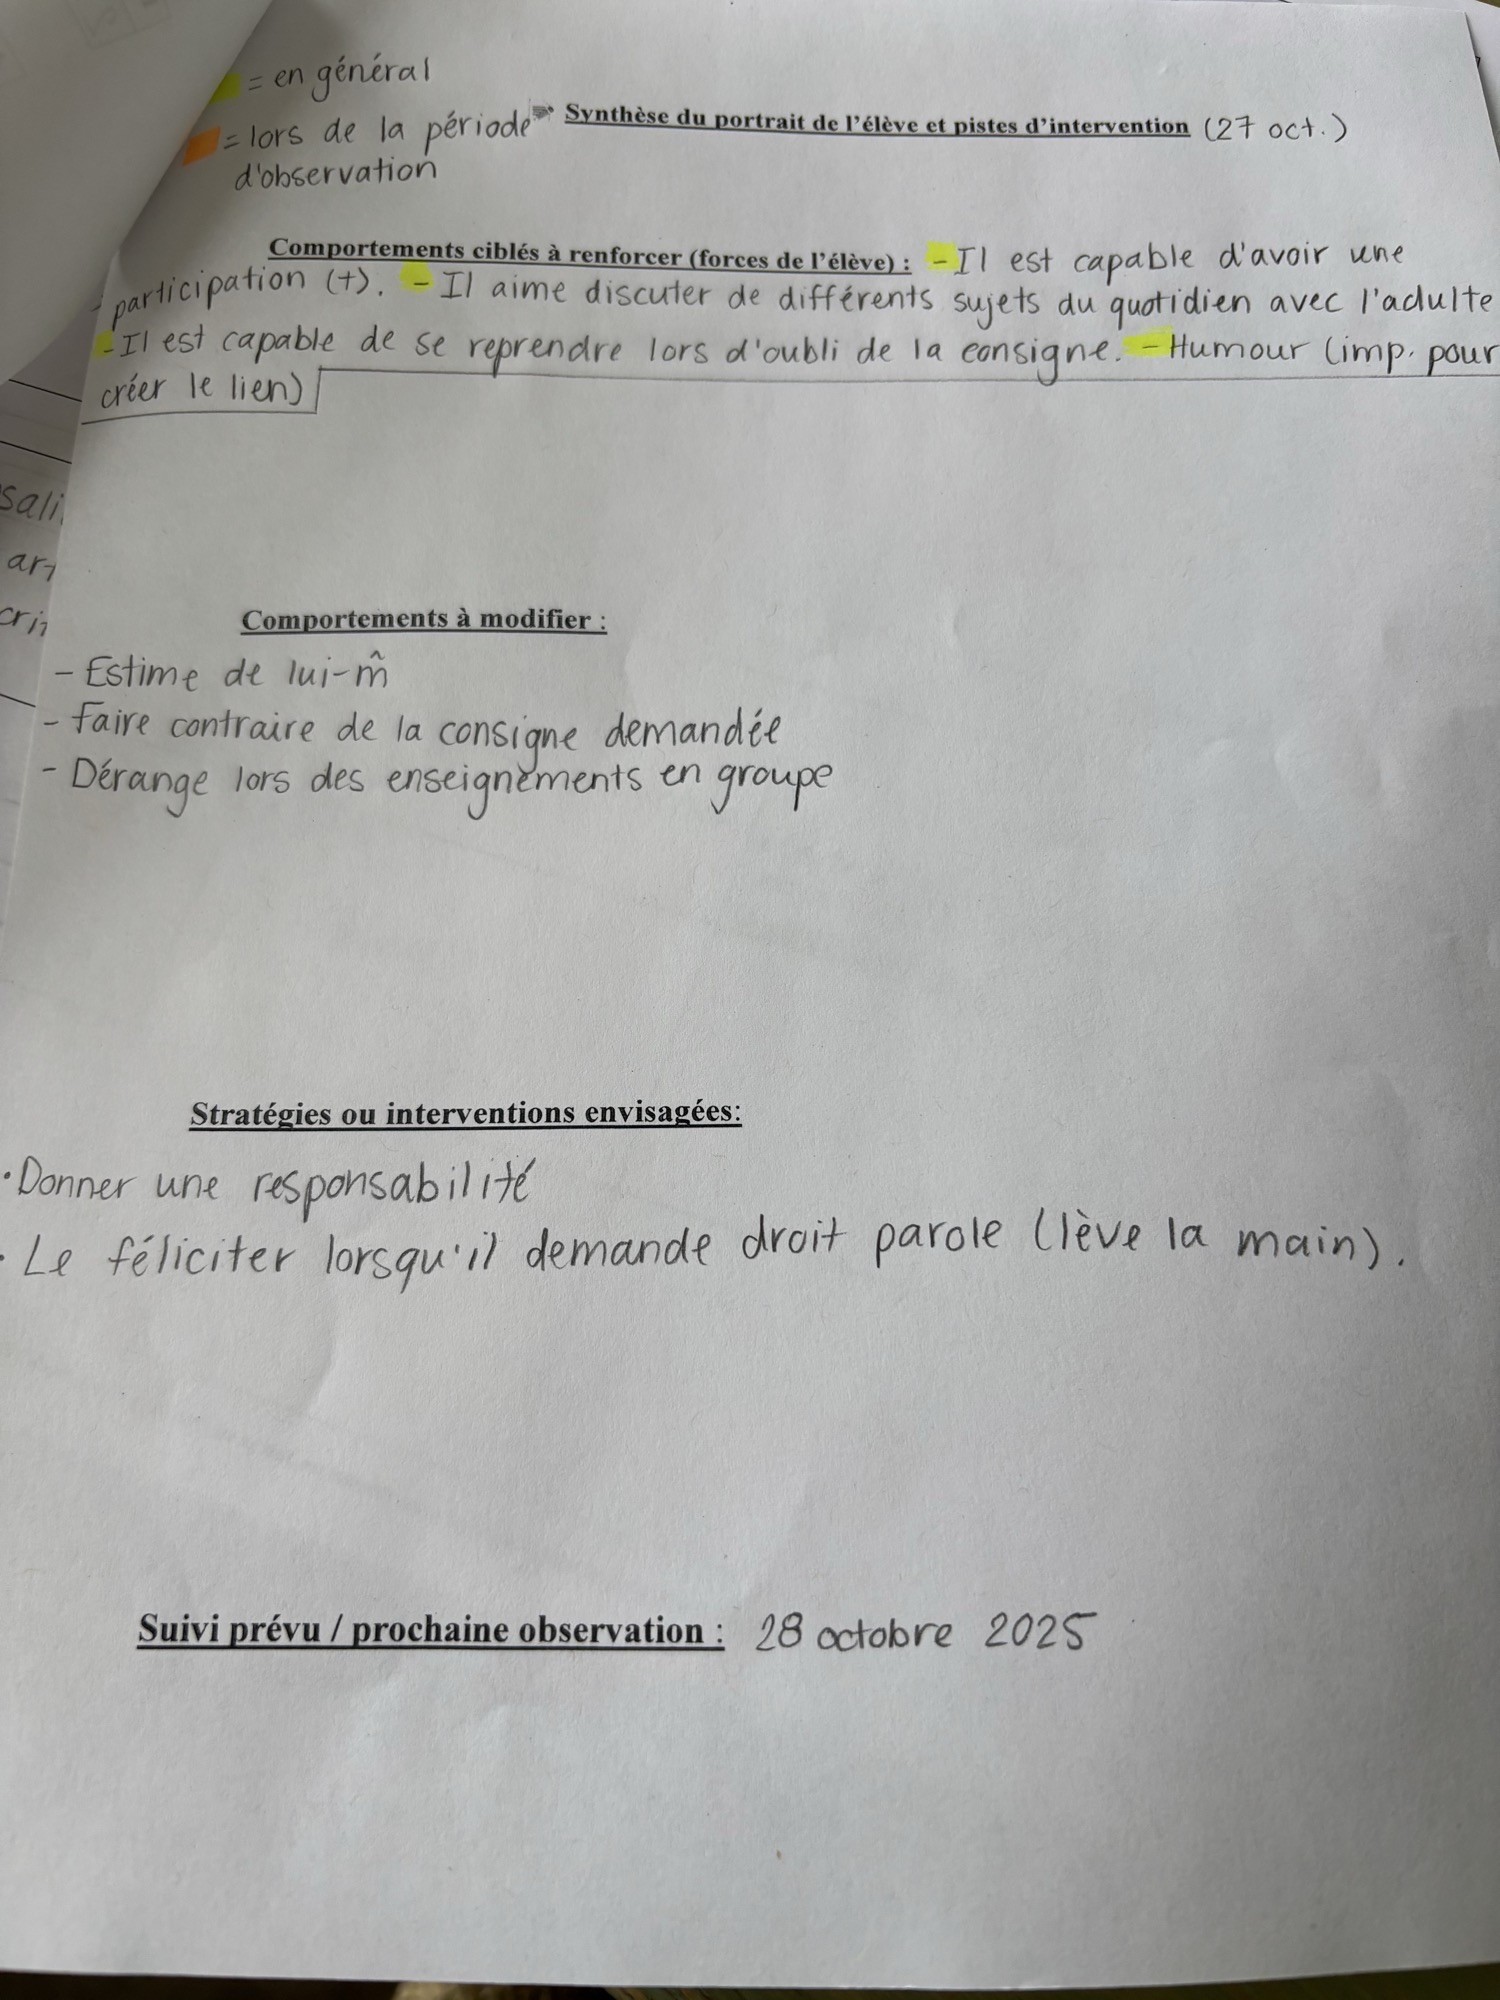 = en général
= lors de la période
d'observation
Synthèse du portrait de l'élève et pistes d'intervention (27 oct.)
Comportements ciblés à renforcer (forces de l'élève) : - Il est capable d'avoir une
participation (+). - Il aime discuter de différents sujets du quotidien avec l'adulte
- Il est capable de se reprendre lors d'oubli de la consigne. - Humour (imp. pour
créer le lien)
Comportements à modifier :
- Estime de lui-m̂
- Faire contraire de la consigne demandée
- Dérange lors des enseignements en groupe
Stratégies ou interventions envisagées:
· Donner une responsabilité
· Le féliciter lorsqu'il demande droit parole (lève la main).
Suivi prévu / prochaine observation : 28 octobre 2025